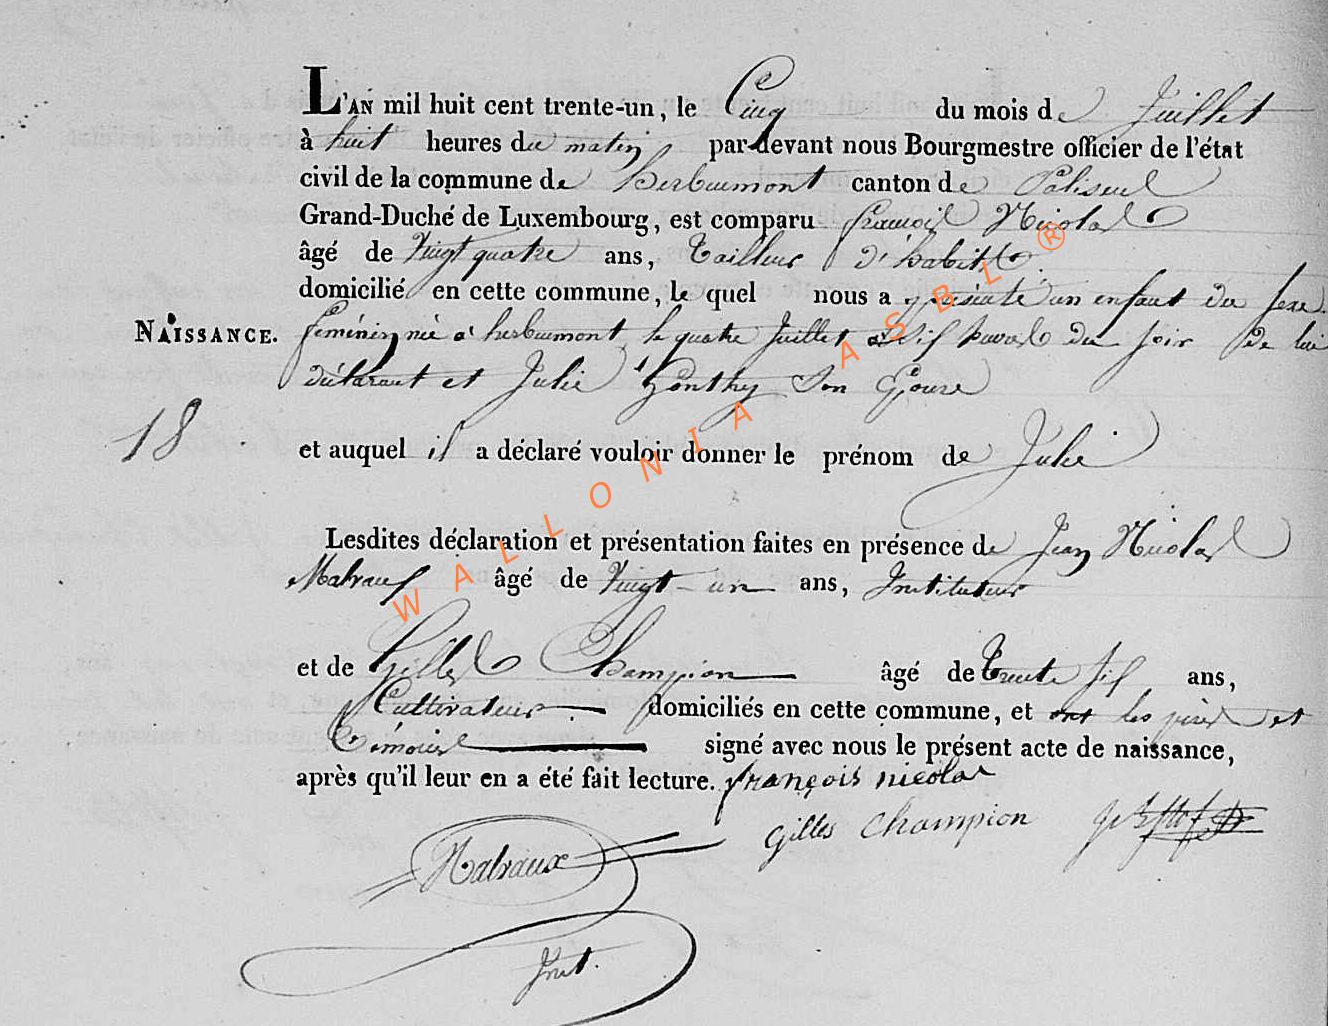 L'AN mil huit cent trente-un, le Cinq du mois de Juillet
à huit heures du matin par-devant nous Bourgmestre officier de l'état
civil de la commune de herbeumont canton de Paliseul
Grand-Duché de Luxembourg, est comparu françois Nicolas
âgé de Vingt quatre ans, Tailleur d'habits
domicilié en cette commune, le quel nous a présenté un enfant du sexe
NAISSANCE. feminin née à herbeumont, le quatre Juillet à Six heures du soir de lui
déclarant et Julie Gonthy Son Epouse
18
et auquel il a déclaré vouloir donner le prénom de Julie
Lesdites déclaration et présentation faites en présence de Jean Nicolas
Malvaux âgé de Vingt-un ans, Instituteur
et de Gilles Champion âgé de Trente six ans,
Cultivateur domiciliés en cette commune, et ont les père et
Témoins signé avec nous le présent acte de naissance,
après qu'il leur en a été fait lecture. françois nicolas
gilles champion
Malvaux
Inst.
WALLONIA ASBL ®